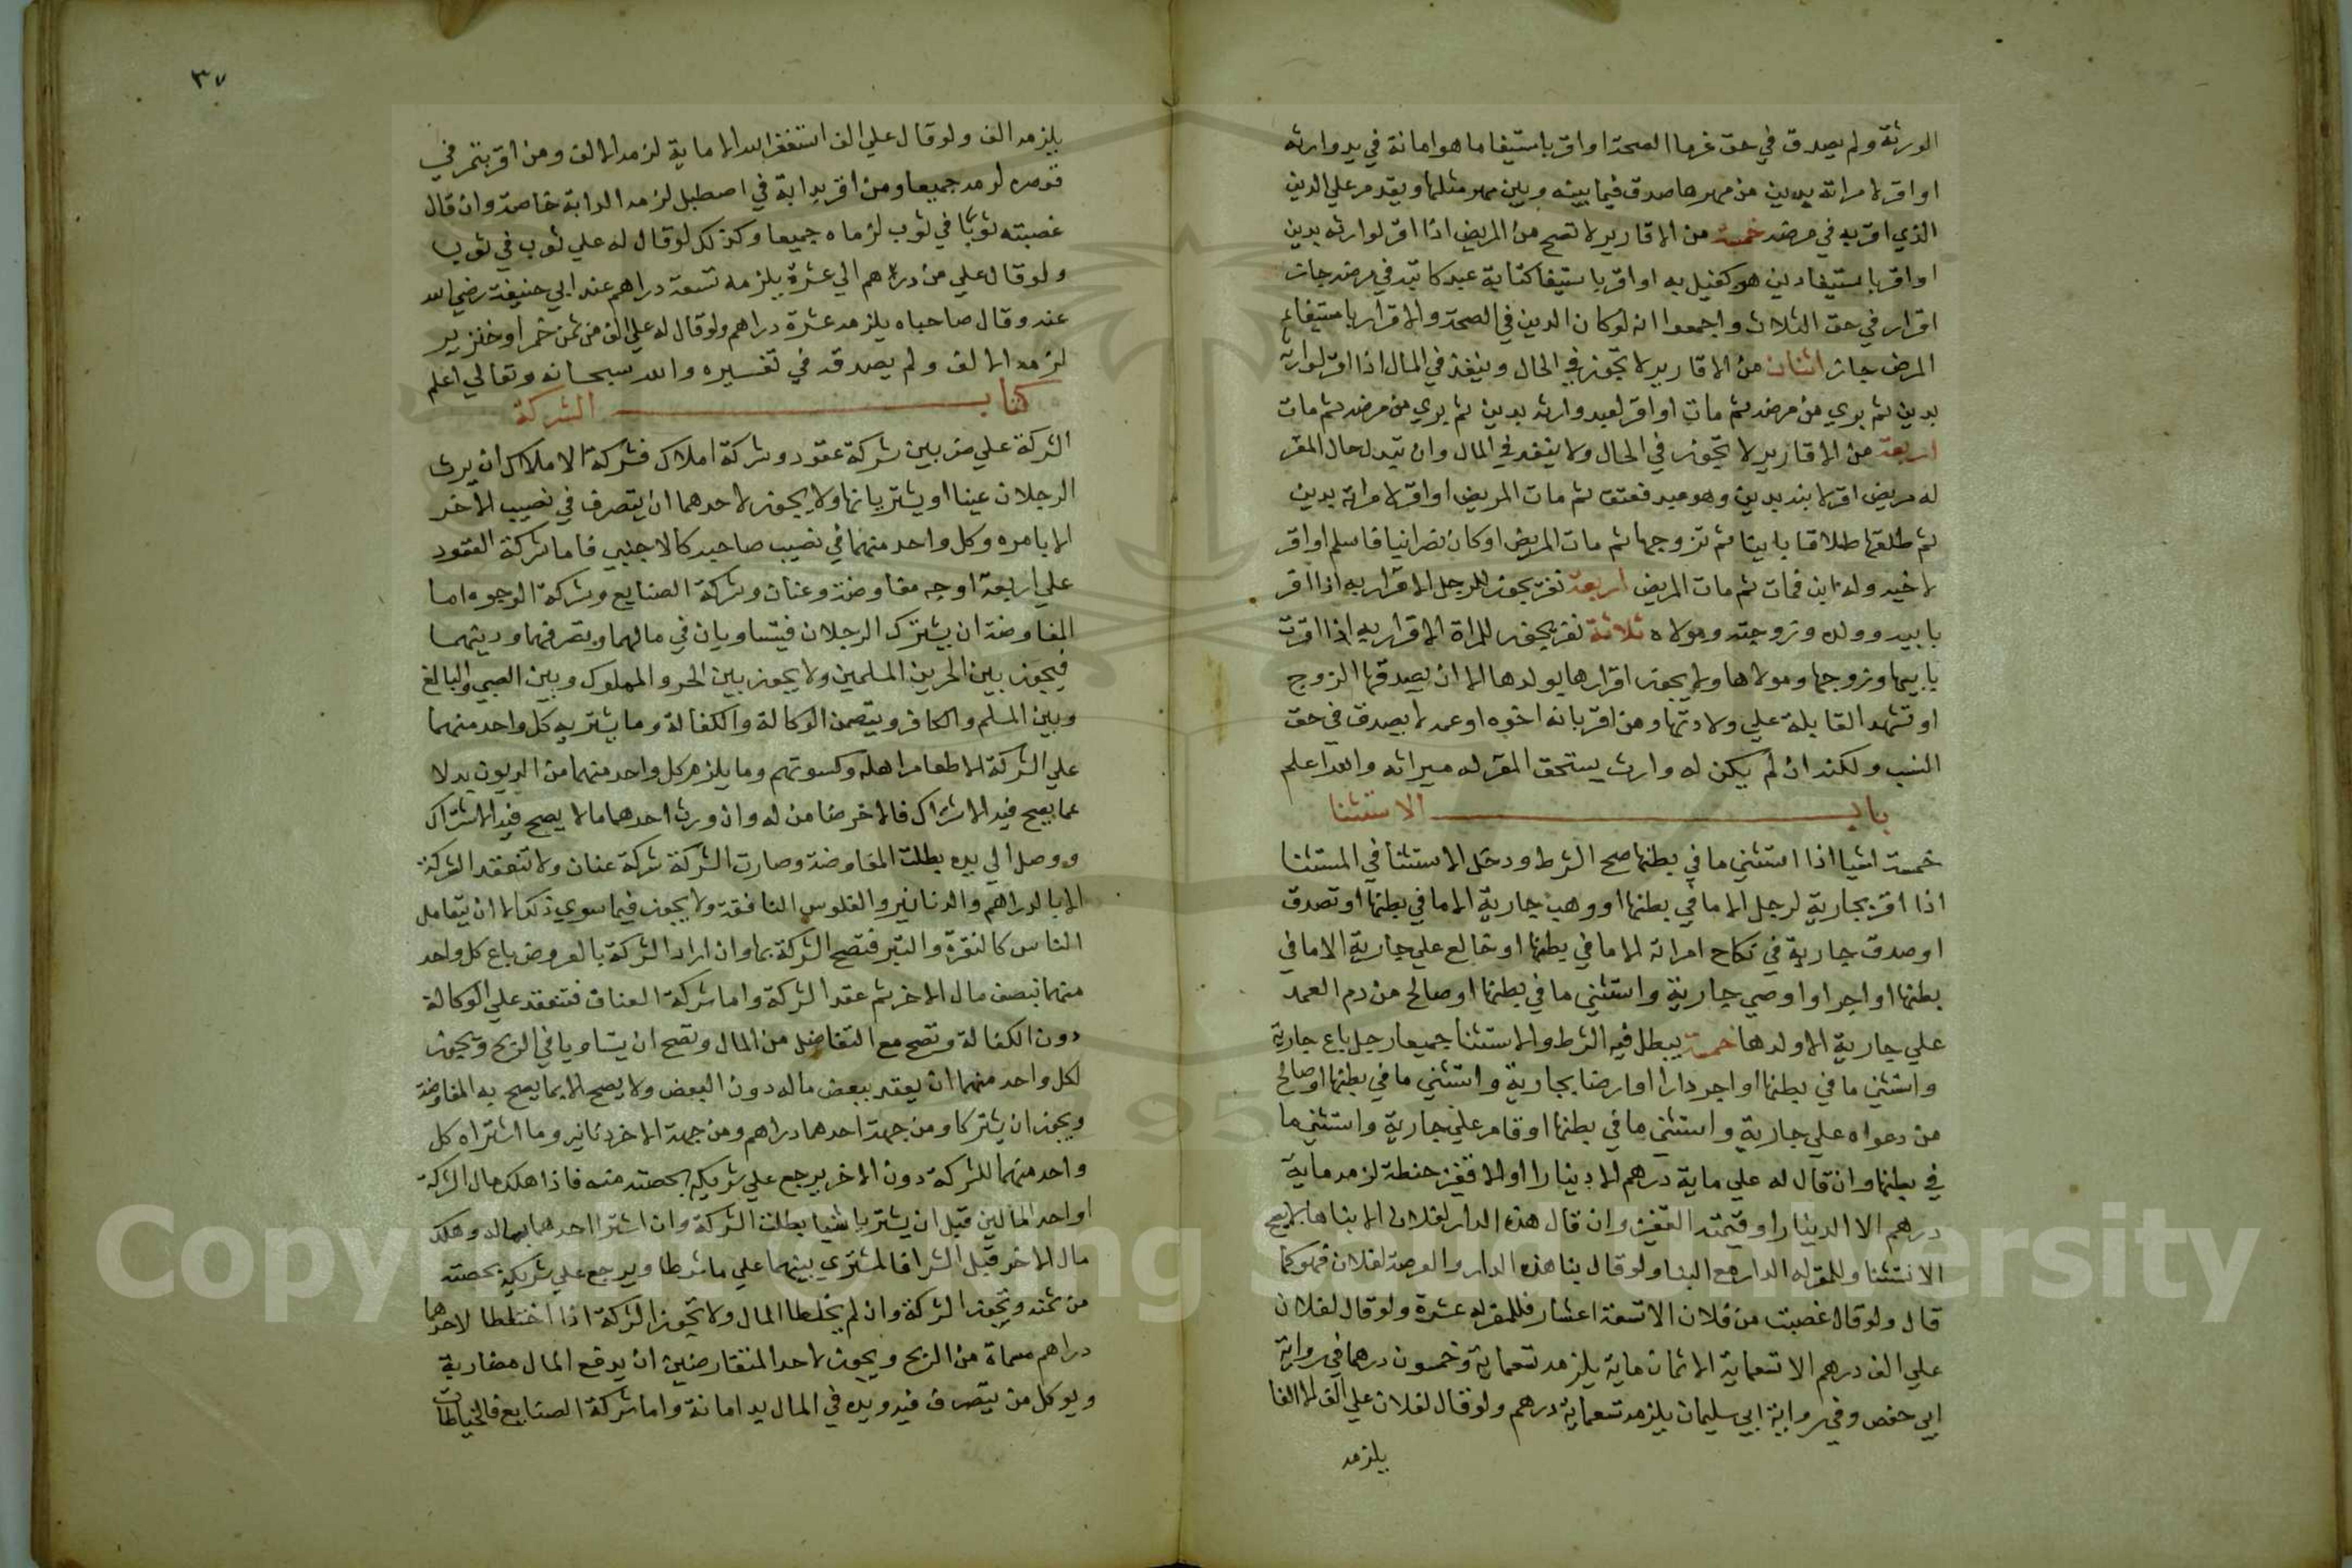 الورثة ولم يصدق في حق غرما الصحة او اقر باستيفا ما هو امانة في يد وارثه
او اقر لامراته بدين من مهرها صدق فيما بينه وبين مهر مثلها ويقدم علي الدين
الذي اقر به في مرضه خمسة من الاقارير لا تصح من المريض اذا اقر لوارثه بدين
او اقر باستيفا دين هو كفيل به او اقر باستيفا كتابة عبد كاتبه في مرضه جاز
اقراره في حق الثلاث واجمعوا انه لو كان الدين في الصحة والاقرار باستيفا في
المرض جاز اثنان من الاقارير لا تجوز في الحال وينفذ في المال اذا اقر لوارثه
بدين ثم بري من مرضه ثم مات او اقر لعبد وارثه بدين ثم بري من مرضه ثم مات
اربعة من الاقارير لا تجوز في الحال ولا ينفد في المال وان تبدل حال المقر
له مريض اقر لابنه بدين وهو عبد فعتق ثم مات المريض او اقر لامراته بدين
ثم طلقها طلاقا باينا ثم تزوجها ثم مات المريض او كان نصرانيا فاسلم او اقر
لاخيه وله ابن فمات ثم مات المريض اربعة نفر يجوز للرجل الاقرار به اذا اقر
بابيه وولده وزوجته ومولاه ثلاثة نفر يجوز للمراة الاقرار به اذا اقرت
بابيها وزوجها ومولاها ولا يجوز اقرارها بولدها الا ان يصدقها الزوج
او تشهد القابلة علي ولادتها ومن اقر بانه اخوه او عمه لا يصدق في حق
النسب ولكنه ان لم يكن له وارث يستحق المقر له ميراثه والله اعلم
باب الاستثنا
خمسة اشيا اذا استثني ما في بطنها صح الشرط ودخل الاستثنا في المستثنا
اذا اقر بجارية لرجل الا ما في بطنها او وهب جارية الا ما في بطنها او تصدق
او صدق جارية في نكاح امراته الا ما في بطنها او خالع علي جارية الا ما في
بطنها او اجر او اوصي جارية واستثني ما في بطنها او صالح من دم العمد
علي جارية الا ولدها خمسة يبطل فيه الشرط والاستثنا جميعا رجل باع جارية
واستثني ما في بطنها او اجر دارا او ارضا بجارية واستثني ما في بطنها او صالح
من دعواه علي جارية واستثني ما في بطنها او قامر علي جارية واستثني ما
في بطنها وان قال له علي ماية درهم الا دينارا او الا قفيز حنطة لزمه ماية
درهم الا الدينار او قيمته القفيز وان قال هذه الدار لفلان الا بناها لا يصح
الاستثنا وللمقر له الدار مع البنا ولو قال بنا هذه الدار والعرصة لفلان فهو كما
قال ولو قال غصبت من فلان الا تسعة اعشار فللمقر له عشرة ولو قال لفلان
علي الف درهم الا تسعماية الا ثمان ماية يلزمه تسعماية وخمسون درهما في رواية
ابي حفص وفي رواية ابي سليمان يلزمه تسعماية درهم ولو قال لفلان علي الف الا الفا
يلزمه
٣٧
يلزمه الف ولو قال علي الف استغفر الله الا ماية لزمه الالف ومن اقر بتمر في
قوصره لزمه جميعا ومن اقر بدابة في اصطبل لزمه الدابة خاصة وان قال
غصبته ثوبا في ثوب لزماه جميعا وكذلك لو قال له علي ثوب في ثوب
ولو قال علي من درهم الي عشرة يلزمه تسعة دراهم عند ابي حنيفة رضي الله
عنه وقال صاحباه يلزمه عشرة دراهم ولو قال له علي الف من ثمن خمر او خنزير
لزمه الالف ولم يصدق في تفسيره والله سبحانه وتعالي اعلم
كتاب الشركة
الشركة علي ضربين شركة عقود وشركة املاك فشركة الاملاك ان يرث
الرجلان عينا او يشتريانها ولا يجوز لاحدهما ان يتصرف في نصيب الاخر
الا بامره وكل واحد منهما في نصيب صاحبه كالاجنبي فاما شركة العقود
علي اربعة اوجه مفاوضة وعنان وشركة الصنايع وشركة الوجوه اما
المفاوضة ان يشترك الرجلان فيتساويان في مالهما وتصرفهما ودينهما
فيجوز بين الحرين المسلمين ولا يجوز بين الحر والمملوك وبين الصبي والبالغ
وبين المسلم والكافر ويتضمن الوكالة والكفالة وما يشتريه كل واحد منهما
علي الشركة الا طعام اهله وكسوتهم وما يلزم كل واحد منهما من الديون بدلا
عما يصح فيه الاشتراك فالاخر ضامن له وان ورث احدهما مالا يصح فيه الاشتراك
ووصل الي يده بطلت المفاوضة وصارت الشركة شركة عنان ولا تنعقد الشركة
الا بالدراهم والدنانير والفلوس النافقة ولا يجوز فيما سوي ذلك الا ان يتعامل
الناس كالنقرة والتبر فتصح الشركة بها وان اراد الشركة بالعروض باع كل واحد
منهما نصف مال الاخر ثم عقد الشركة واما شركة العنان فتنعقد علي الوكالة
دون الكفالة وتصح مع التفاضل من المال وتصح ان يتساويا في الربح ويجوز
لكل واحد منهما ان يعقد ببعض ماله دون البعض ولا يصح الا بما يصح به المفاوضة
ويجوز ان يشتركا ومن جهة احدهما دراهم ومن جهة الاخر دنانير وما اشتراه كل
واحد منهما للشركة دون الاخر يرجع علي شريكه بحصته منه فاذا هلك مال الشركة
او احد المالين قبل ان يشتريا شيا بطلت الشركة وان اشترا احدهما بماله وهلك
مال الاخر قبل الشرا فالمشتري بينهما علي ما شرطا ويرجع علي شريكه بحصته
من ثمنه وتجوز الشركة وان لم يخلطا المال ولا تجوز الشركة اذا اختلطا لاحدهما
دراهم مسماة من الربح ويجوز لاحد المتقارضين ان يدفع المال مضاربة
ويوكل من يتصرف فيه ويده في المال يد امانة واما شركة الصنايع فالخياطات
Copyright © King Saud University